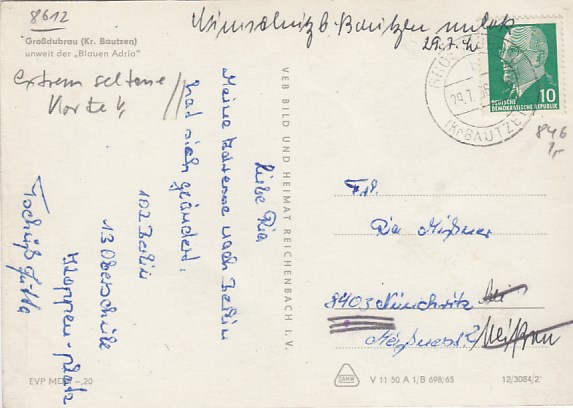 8612
Großdubrau (Kr. Bautzen)
unweit der „Blauen Adria"
extrem seltene
Karte!
b. Bautzen
29.7.
29.7.
(Kr BAUTZEN)
10
DEUTSCHE
DEMOKRATISCHE REPUBLIK
846
Liebe Ria
Meine Adresse nach Berlin
hat sich geändert.
102 Berlin
13 Oberschule
VEB BILD UND HEIMAT REICHENBACH I. V.
Frl.
Ria Mißner
8403 Nünchritz
Meißner
Meißen
EVP MDN -,20
V 11 50 A 1/B 698/65
12/3084/2